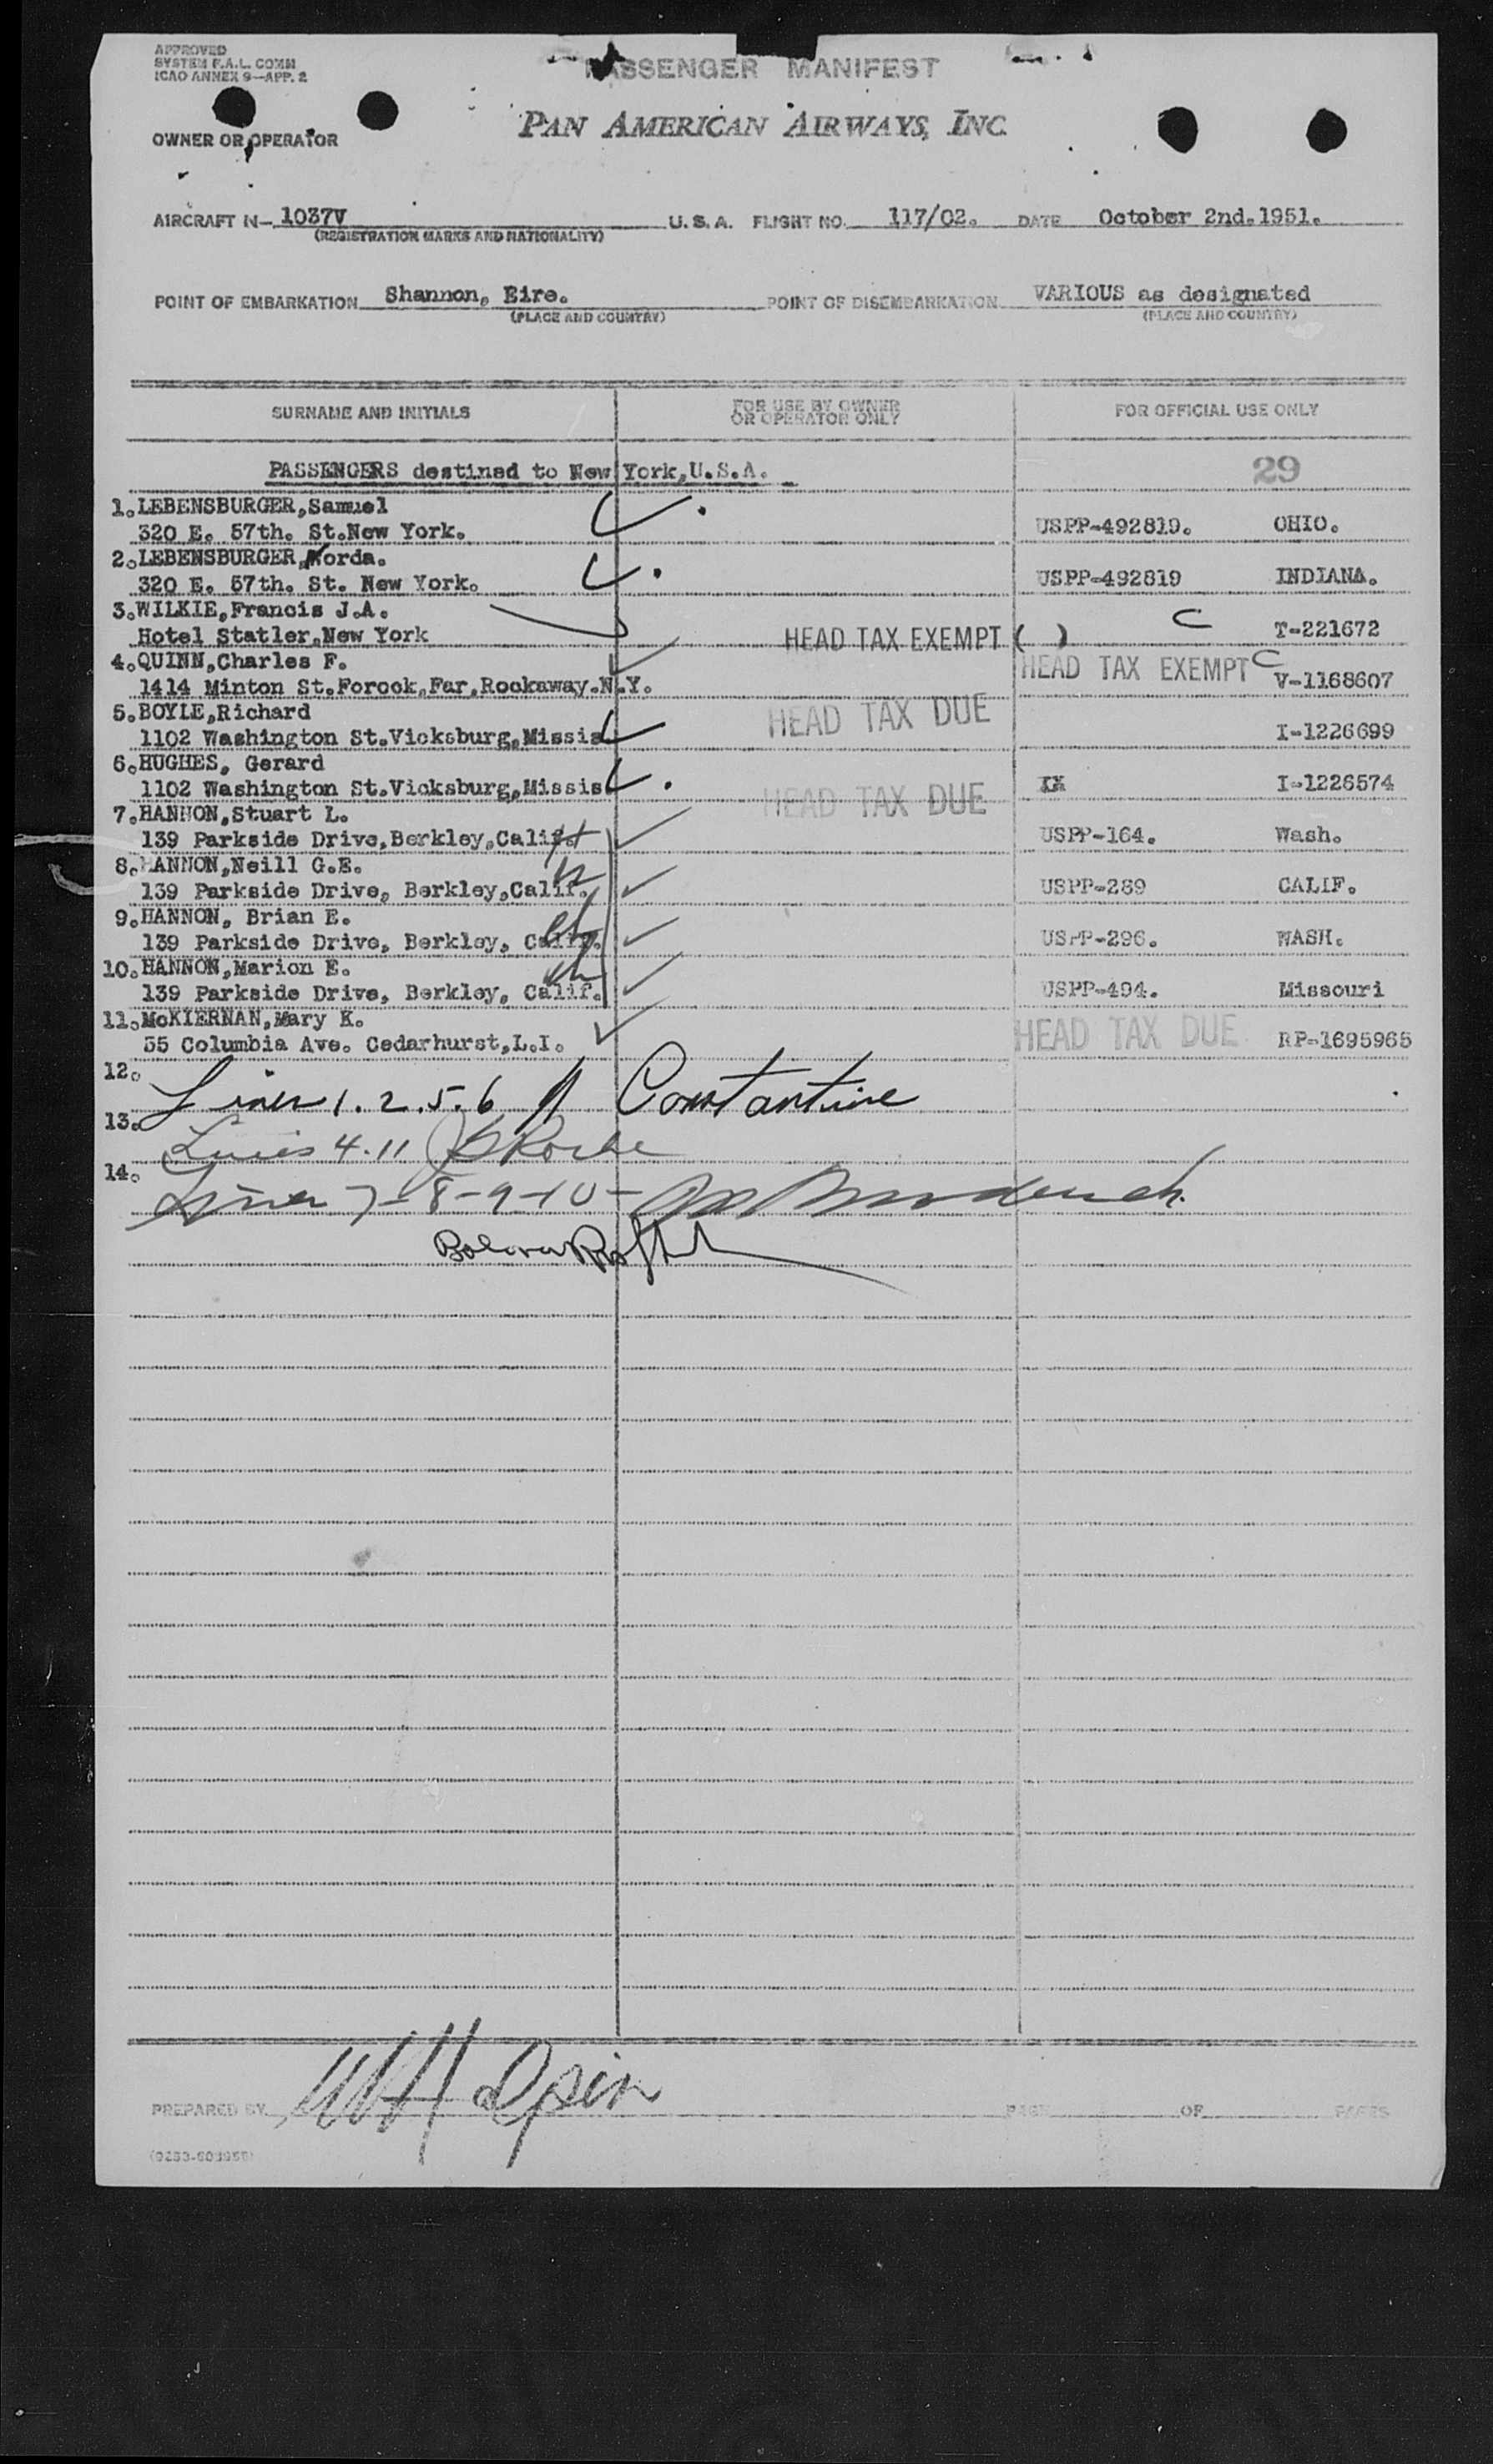 APPROVED
SYSTEM F.A.L. COMM
ICAO ANNEX 9—APP. 2
PASSENGER MANIFEST
OWNER OR OPERATOR
PAN AMERICAN AIRWAYS, INC.
AIRCRAFT N— 1037V U.S.A. FLIGHT NO. 117/02. DATE October 2nd.1951.
(REGISTRATION MARKS AND NATIONALITY)
POINT OF EMBARKATION Shannon, Eire. POINT OF DISEMBARKATION VARIOUS as designated
(PLACE AND COUNTRY) (PLACE AND COUNTRY)
SURNAME AND INITIALS FOR USE BY OWNER OR OPERATOR ONLY FOR OFFICIAL USE ONLY
PASSENGERS destined to New York,U.S.A. 29
1.LEBENSBURGER,Samuel
320 E. 57th. St.New York. USPP-492819. OHIO.
2.LEBENSBURGER,Norda.
320 E. 57th. St. New York. USPP-492819 INDIANA.
3.WILKIE,Francis J.A.
Hotel Statler,New York HEAD TAX EXEMPT ( ) C T-221672
4.QUINN,Charles F. HEAD TAX EXEMPT C
1414 Minton St.Forock,Far,Rockaway.N.Y. V-1168607
5.BOYLE,Richard HEAD TAX DUE
1102 Washington St.Vicksburg,Missis I-1226699
6.HUGHES, Gerard
1102 Washington St.Vicksburg,Missis. HEAD TAX DUE I-1226574
7.HANNON,Stuart L.
139 Parkside Drive,Berkley,Calif. USPP-164. Wash.
8.HANNON,Neill G.E.
139 Parkside Drive, Berkley,Calif. USPP-289 CALIF.
9.HANNON, Brian E.
139 Parkside Drive, Berkley, Calif. USPP-296. WASH.
10.HANNON,Marion E.
139 Parkside Drive, Berkley, Calif. USPP-494. Missouri
11.McKIERNAN,Mary K.
55 Columbia Ave. Cedarhurst,L.I. HEAD TAX DUE RP-1695965
12.
Lines 1.2.5.6 Constantine
13.
Lines 4.11
14.
Lines 7-8-9-10-
PREPARED BY PAGE OF PAGES